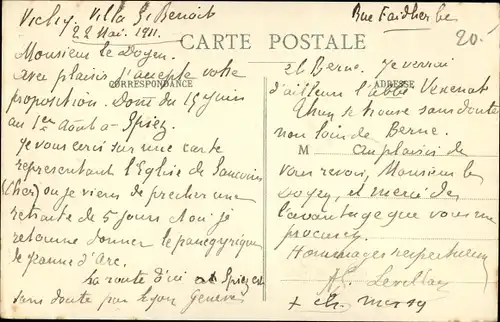 Vichy. Villa St Benoit
22 Mai. 1911.
Rue Faidherbe
20.
CARTE POSTALE
Monsieur le Doyen.
avec plaisir j'accepte votre
CORRESPONDANCE
proposition. Donc du 15 juin
au 1er Août à Spiez
Je vous écris sur une carte
représentant l'Eglise de Sancoins
(Cher) où je viens de prêcher une
retraite de 5 jours et où je
retourne donner le panégyrique
de Jeanne d'Arc.
La route d'ici à Spiez est
sans doute par Lyon Genève
et Berne. Je verrai
ADRESSE
d'ailleurs l'abbé
Thun se trouve sans doute
non loin de Berne.
M
au plaisir de
vous revoir, Monsieur le
Doyen, et merci de
l'avantage que vous me
procurez.
Hommages respectueux